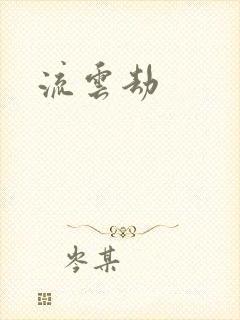 流雲劫
岑某